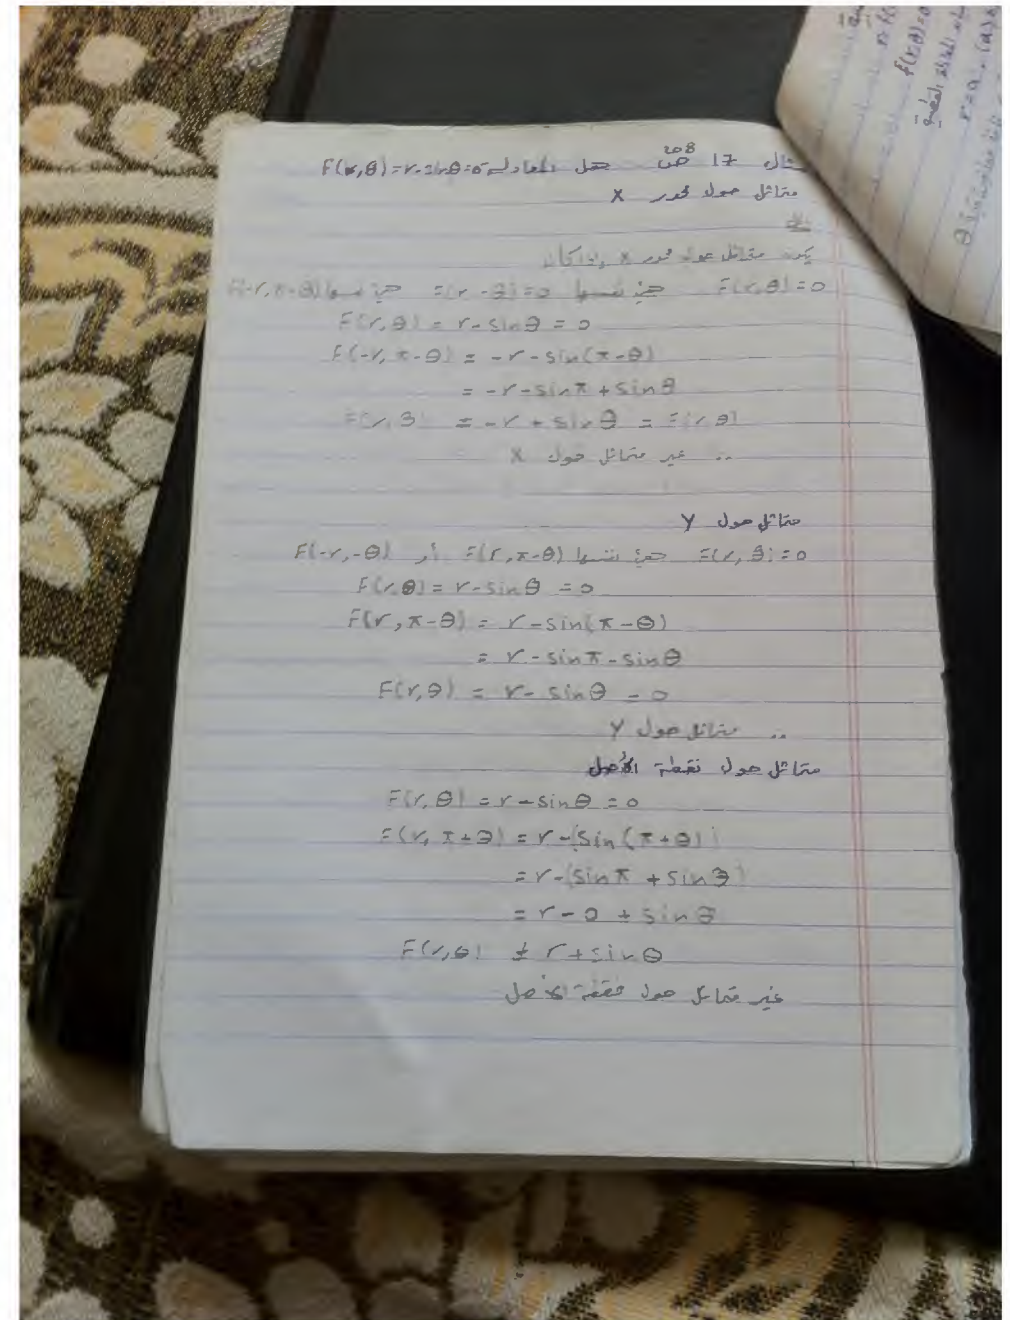 مثال 17 ص 208 هل المعادلة F(r,θ)=r-sinθ=0
متماثل حول محور X
يكون متماثل حول محور x إذا كان
F(r,θ)=0 هي نفسها F(r,-θ)=0 هي نفسها F(-r,π-θ)
F(r,θ) = r-sinθ = 0
F(-r, π-θ) = -r-sin(π-θ)
= -r-sinπ+sinθ
F(r,θ) = -r+sinθ = F(r,θ)
∴ غير متماثل حول X
متماثل حول Y
F(r,θ)=0 هي نفسها F(r,π-θ) أو F(-r,-θ)
F(r,θ) = r-sinθ = 0
F(r,π-θ) = r-sin(π-θ)
= r-sinπ-sinθ
F(r,θ) = r-sinθ = 0
∴ متماثل حول Y
متماثل حول نقطة الأصل
F(r,θ) = r-sinθ = 0
F(r,π+θ) = r-(sin(π+θ))
= r-(sinπ+sinθ)
= r-0+sinθ
F(r,θ) ≠ r+sinθ
غير متماثل حول نقطة الأصل
F(r,θ)=0
r=a